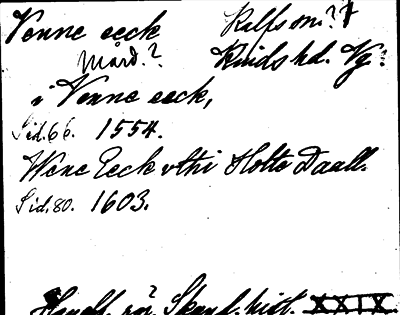 Venne eeck Kalfs sn.??
Mård.? Kinds hd. Vg.
i Venne eeck,
Sid. 66. 1554.
Wene Eeck vthi Holto Daall.
Sid. 80. 1603.
Handl. rör. Skand. hist. XXIX.